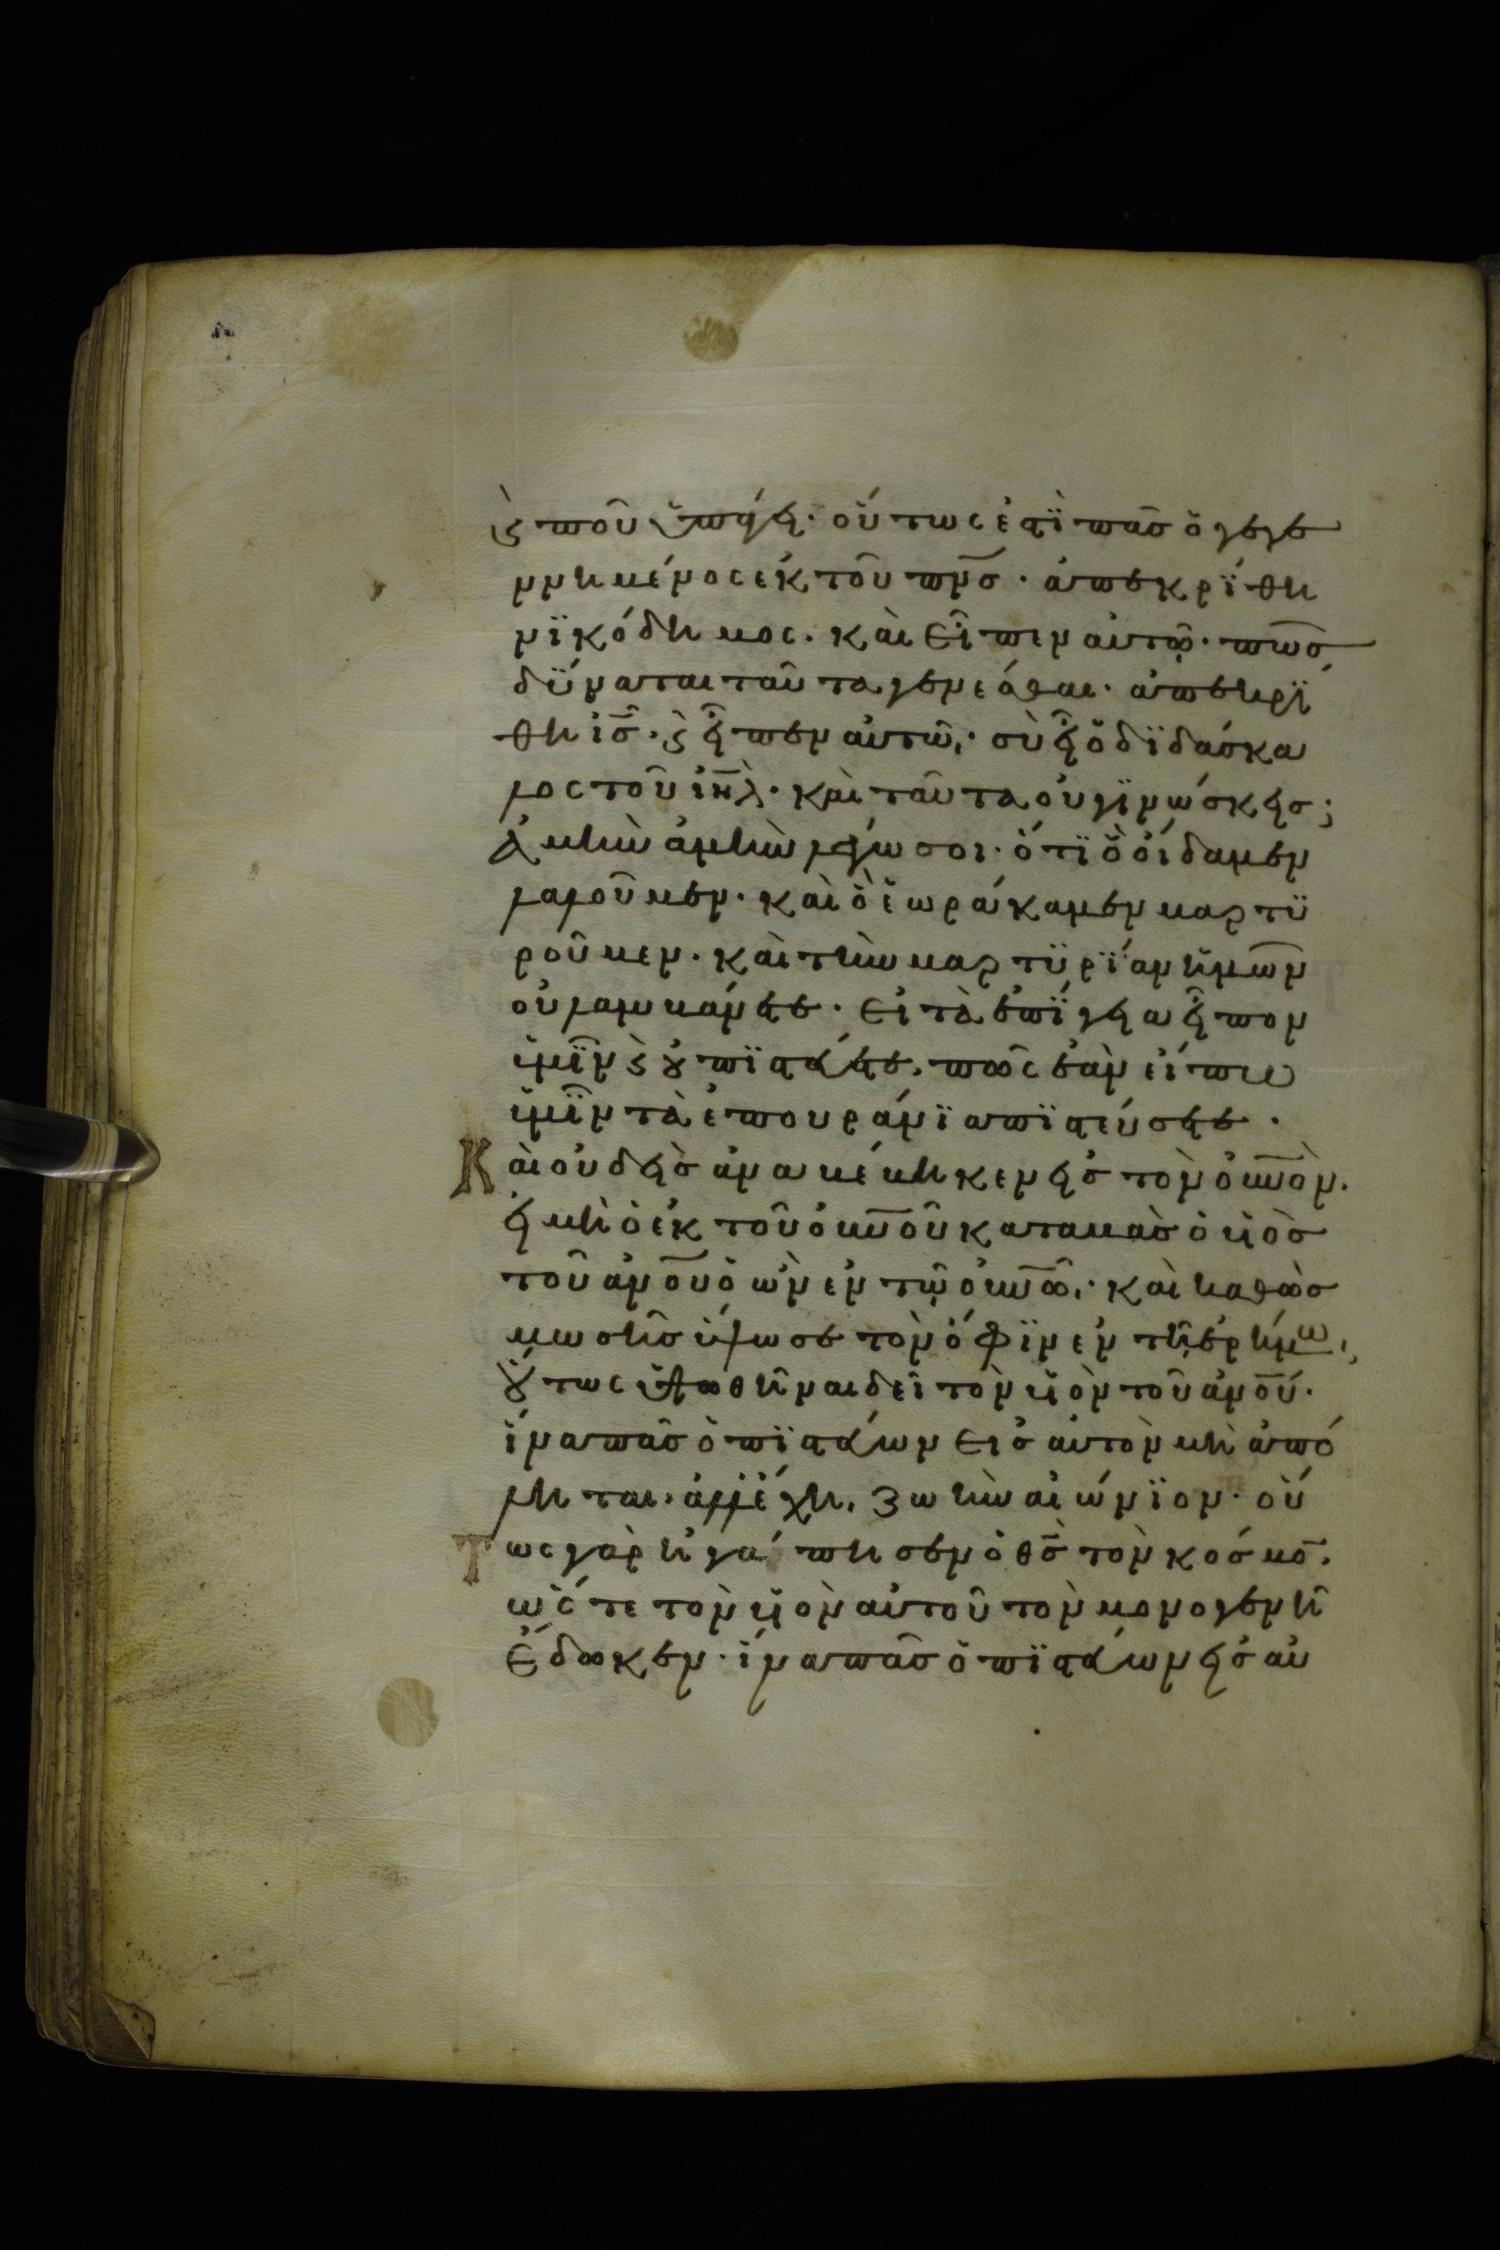 ϗ ποῦ ὑπάγει· οὕτως ἐστὶ πᾶσ ὁ γεγε
ννημένος ἐκ τοῦ πν̅σ· ἀπεκρίθη
νϊκόδημος. καὶ εἶπεν αὐτῷ· πῶσ
δΰναται ταῦτα γενέσθαι· ἀπεκρϊ
θη ἰ̅σ̅· ϗ εἶπεν αὐτῶ,· σὺ εἶ ὁ δϊδάσκα
λος τοῦ ἰη̅λ· καὶ ταῦτα οὐ γϊνώσκεισ;
ἀμὴν ἀμὴν λέγω σοι· ὅτϊ ὃ οἴδαμεν
λαλοῦμεν· καὶ ὃ ἑωράκαμεν μαρτϋ
ροῦμεν· καὶ τὴν μαρτϋρΐαν ἡμῶν
οὐ λαμβάνετε· εἰ τὰ ἐπΐγεια εἶπον
ὑμῖν ϗ οὐ πϊστεύετε, πῶς ἐὰν εἴπω
ὑμῖν τὰ ἐπουράνϊα πϊστεύσετε·
Καὶ οὐδεὶσ ἀναβέβηκεν εἰσ τὸν οὐ̅ν̅ὸν·
εἰ μὴ ὁ ἐκ τοῦ οὐ̅ν̅οῦ καταβὰσ ὁ υἱὸσ
τοῦ ἀν̅ου ὁ ὢν ἐν τῷ οὐ̅ν̅ῶ,· καὶ καθὼσ
μωσῆσ ὕψωσε τὸν ὄφϊν ἐν τῆ ἐρήμω,
οὕτως ὑψωθῆναι δεῖ τὸν υἱὸν τοῦ ἀν̅ου·
ἵνα πᾶσ ὁ πϊστεύων εἰσ αὐτὸν μὴ ἀπό
ληται· ἀλλ' ἔχη, ζωὴν αἰώνϊον· οὕ
Τως γὰρ ἠγάπησεν ὁ θ̅σ̅ τὸν κόσμο̅·
ὥστε τὸν υἱὸν αὐτοῦ τὸν μονογενῆ
ἔδωκεν· ἵνα πᾶσ ὁ πϊστεύων εἰσ αὐ